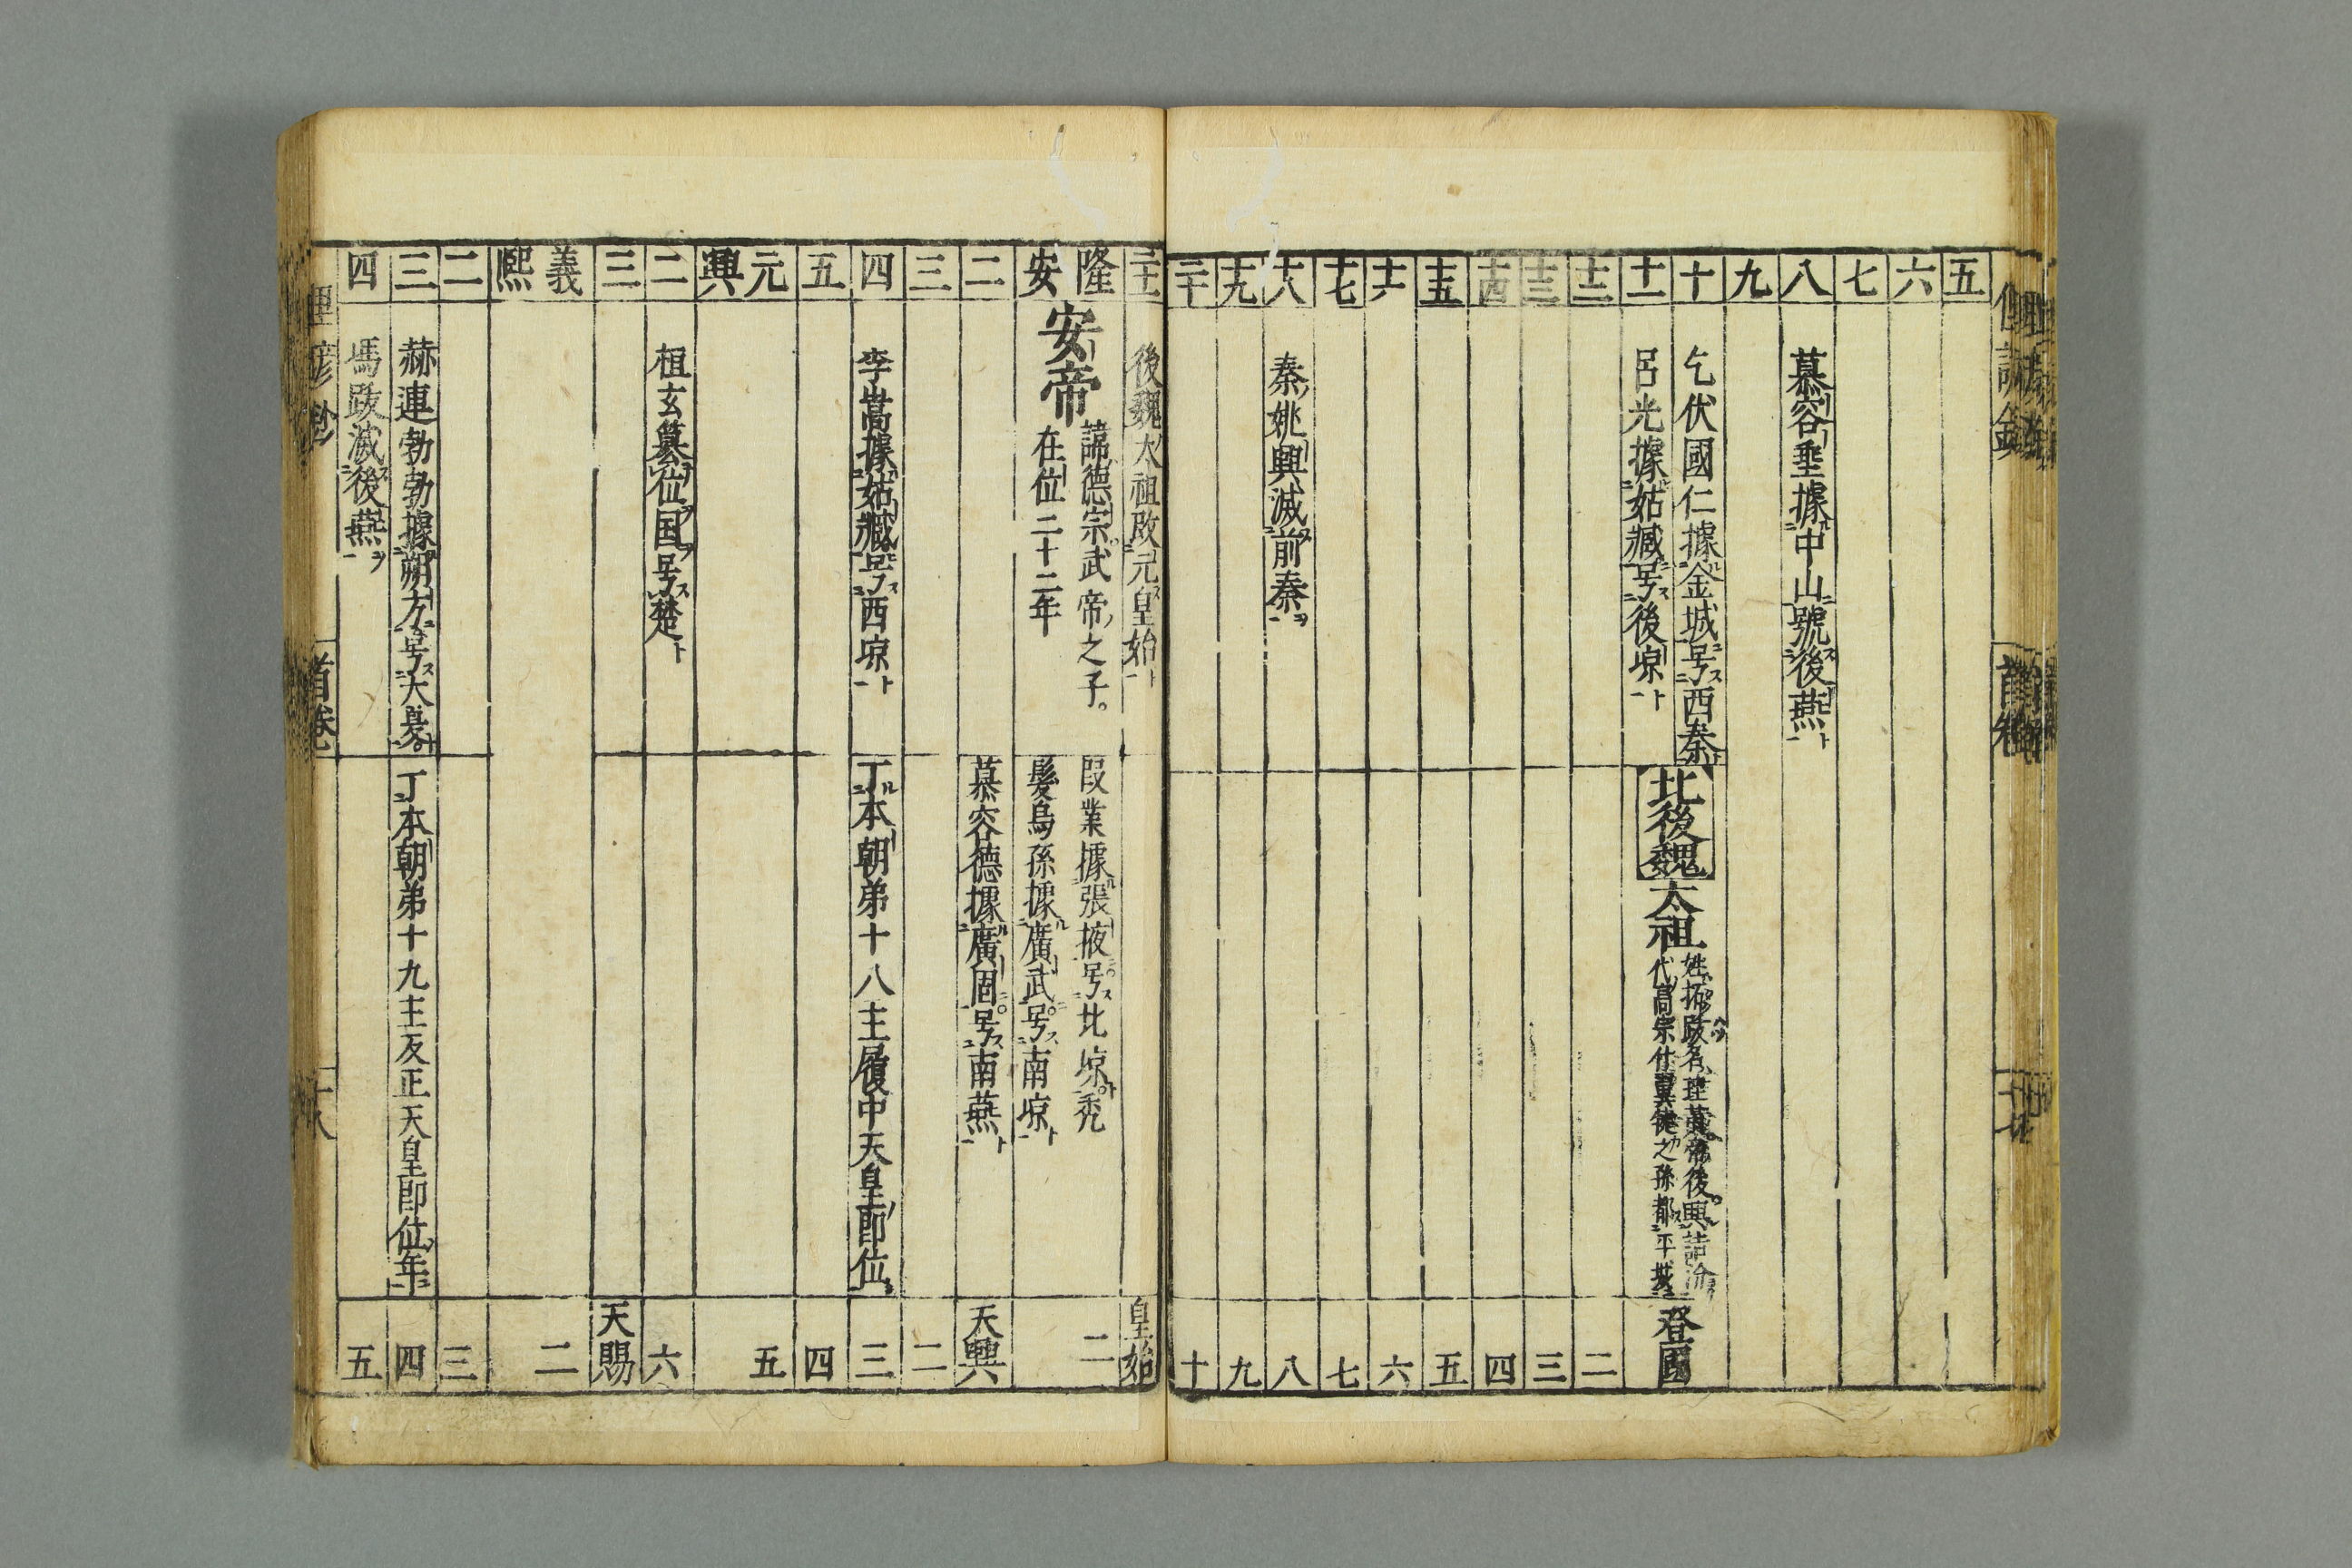 五
六
七
八 慕容垂據中山號後燕
九
十 乞伏國仁據金城号西秦
十一 呂光據姑臧号後凉
北後魏 太祖
姓拓跋名珪黃帝後興詰汾
代高宗什翼犍之孫都平城
登國
十二 二
十三 三
十四 四
十五 五
十六 六
十七 七
十八 秦姚興滅前秦 八
十九 九
二十 十
二十一 後魏太祖改元皇始 皇始
隆安 安帝
諱德宗武帝之子。
在位二十二年
段業據張掖号北凉秃
髮烏孫據廣武号南凉
二
二 慕容德據廣固号南燕 天興
三 二
四 李暠據姑臧号西凉 丁本朝弟十八主履中天皇即位 三
五 四
元興 五
二 桓玄簒位国号楚 六
三 天賜
義熙 二
二 三
三 赫連勃勃據朔方号大夏 丁本朝弟十九主反正天皇即位年 四
四 馮跋滅後燕 五
首卷
十八